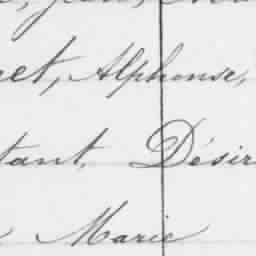 et, Alphonse,
tant, Désir
Marie